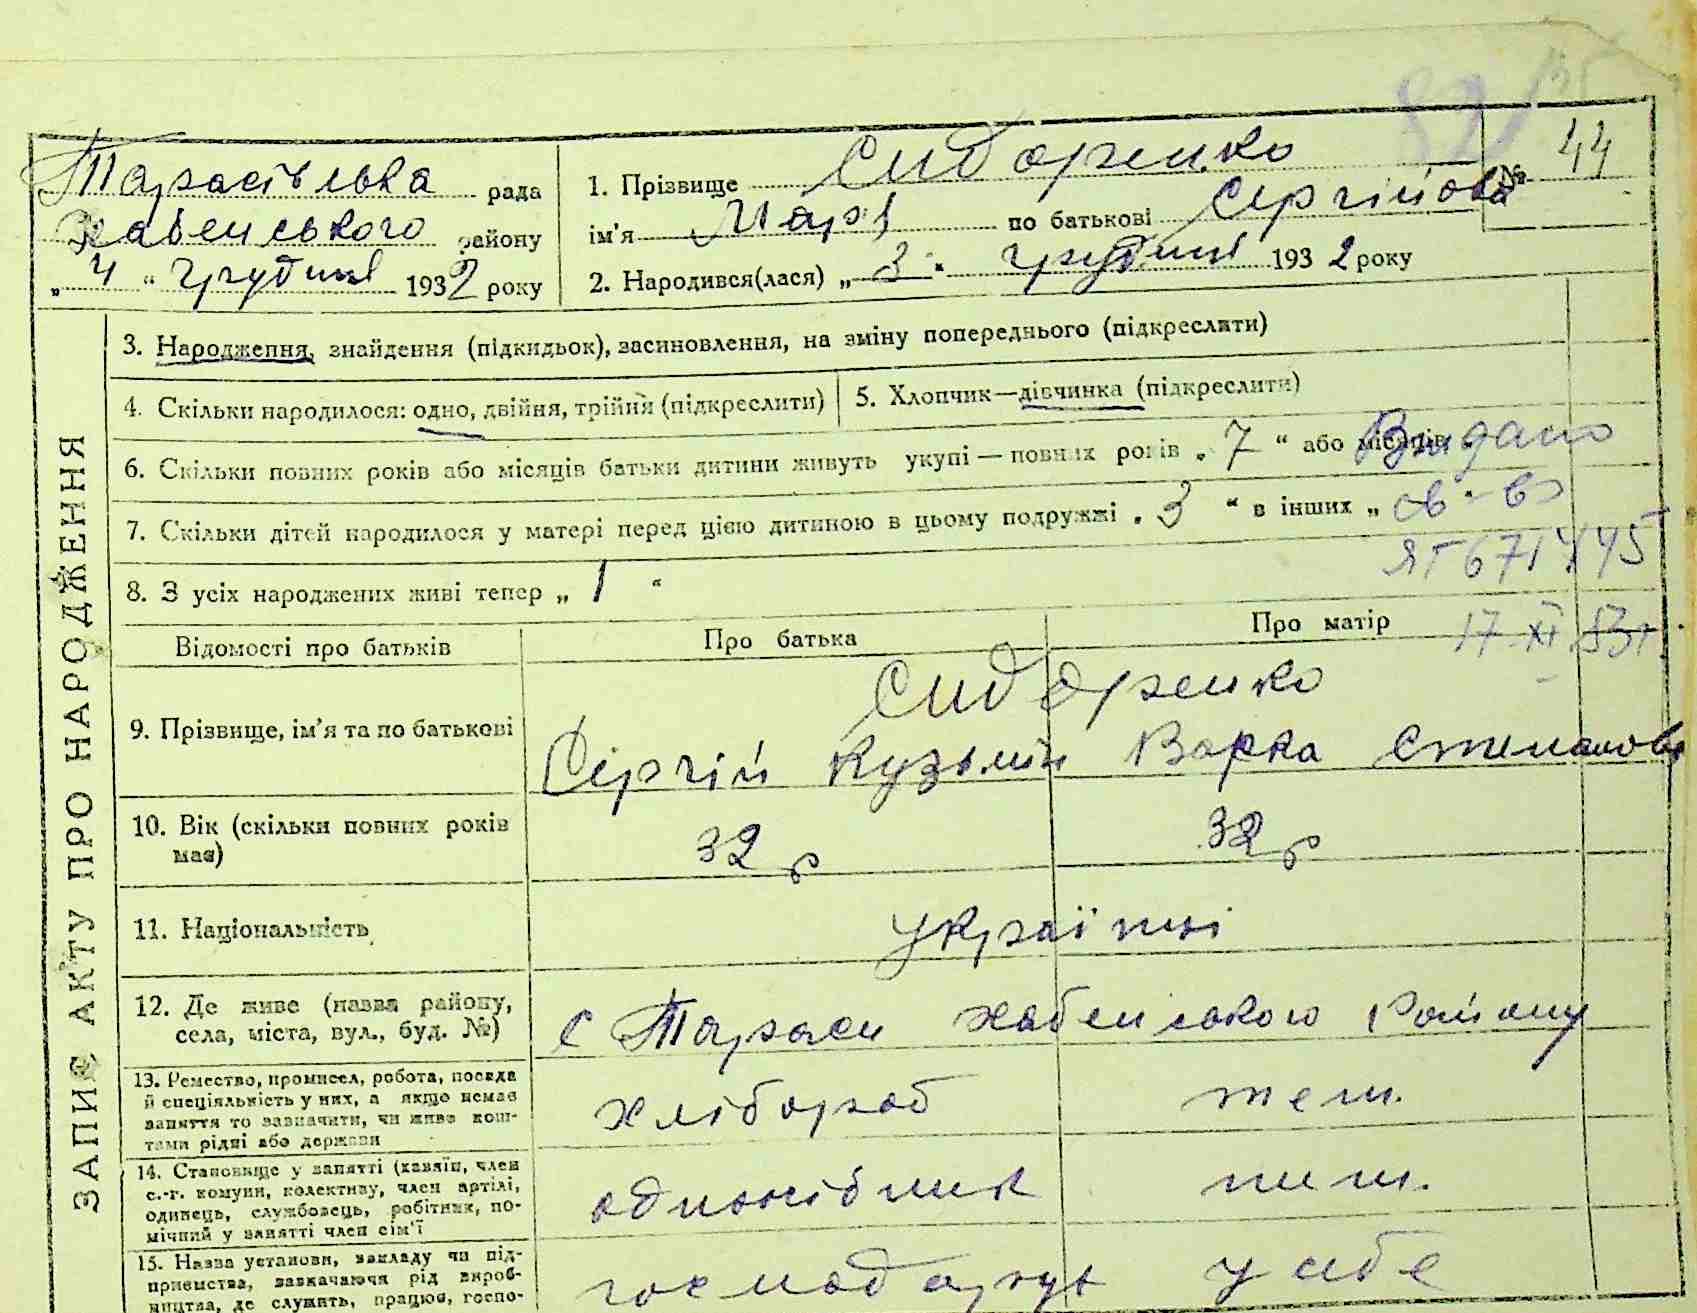 44
Тарасівська рада
Хабенського району
„ 4 “ грудня 1932 року
1. Прізвище Сидоренко
ім'я Марія по батькові Сергійовна
2. Народився(лася) „ 3 “ грудня 1932 року
ЗАПИС АКТУ ПРО НАРОДЖЕННЯ
3. Народження, знайдення (підкидьок), засиновлення, на зміну попереднього (підкреслити)
4. Скільки народилося: одно, двійня, трійня (підкреслити)
5. Хлопчик—дівчинка (підкреслити)
6. Скільки повних років або місяців батьки дитини живуть укупі — повних років „ 7 “ або місяців
Видано
7. Скільки дітей народилося у матері перед цією дитиною в цьому подружжі „ 3 “ в інших „ “
св-во
ЯГ 671445
8. З усіх народжених живі тепер „ 1 “
17 XI 53 г.
Відомості про батьків Про батька Про матір
9. Прізвище, ім'я та по батькові
Сидоренко
Сергій Кузьмін Варка Степанова
10. Вік (скільки повних років має)
32 р 32 р
11. Національність
українці
12. Де живе (назва району,
села, міста, вул., буд. №)
с Тараси Хабенського району
13. Ремество, промисел, робота, посада
й спеціяльність у них, а якщо немає
заняття то зазначити, чи живе кош-
тами рідні або держави
хлібороб теж.
14. Становище у занятті (хазяїн, член
с.-г. комуни, колективу, член артілі,
одинець, службовець, робітник, по-
мічний у занятті член сім'ї
одноосібник
15. Назва установи, закладу чи під-
приємства, зазначаючи рід вироб-
ництва, де служить, працює, госпо-
у себе